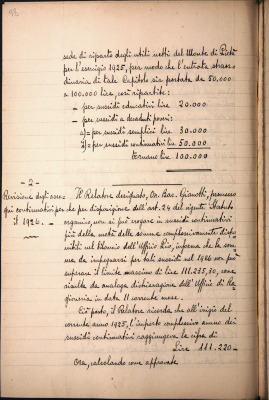 sede di riparto degli utili netti del Monte di Pietà
per l'esercizio 1925, per modo che l'entrata straor-
dinaria di tale Capitolo sia portata da 50.000
a 100.000 lire, così ripartite:
- per sussidi educativi lire 20.000
- per sussidi a decaduti poveri:
a)= per sussidi semplici lire 30.000
b)= per sussidi continuativi lire 50.000
Tornano lire 100.000
- 2 -
Revisione degli asse-
gni continuativi per
il 1926.
Il Relatore designato, On. Bac. Gianotti, premesso
che per disposizione dell'art. 24 del vigente Statuto
organico, non si può erogare in sussidi continuativi
più della metà delle somme complessivamente dispo-
nibili nel bilancio dell'Ufficio Pio, informa che la som-
ma da impegnarsi per tali sussidi nel 1926 non può
superare il limite massimo di lire 111.235,30, come
risulta da analoga dichiarazione dell'Ufficio di Ra-
gioneria in data 11 corrente mese.
Ciò posto, il Relatore ricorda che all'inizio del
corrente anno 1925, l'importo complessivo annuo dei
sussidi continuativi raggiungeva la cifra di
Lire 111.220-
Ora, calcolando come approvate